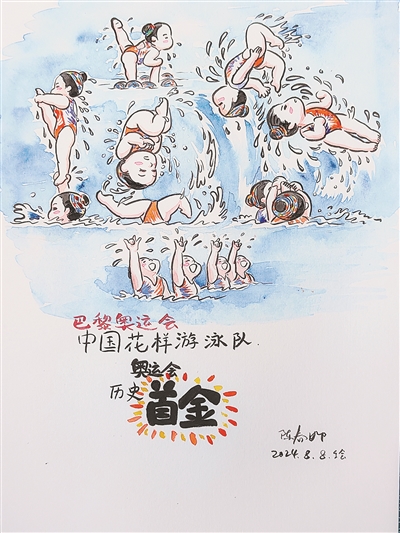 巴黎奥运会
中国花样游泳队.
奥运会
历史首金
2024.8.8.绘